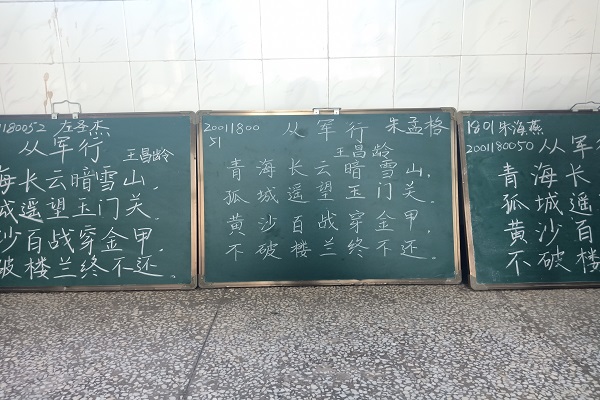 1180052 左圣杰
从军行
王昌龄
海长云暗雪山，
城遥望玉门关。
沙百战穿金甲，
破楼兰终不还。
20011800
51
从军行 朱孟格
王昌龄
青海长云暗雪山，
孤城遥望玉门关。
黄沙百战穿金甲，
不破楼兰终不还。
1801 朱海燕
2001180050 从军
青海长
孤城遥
黄沙百
不破楼